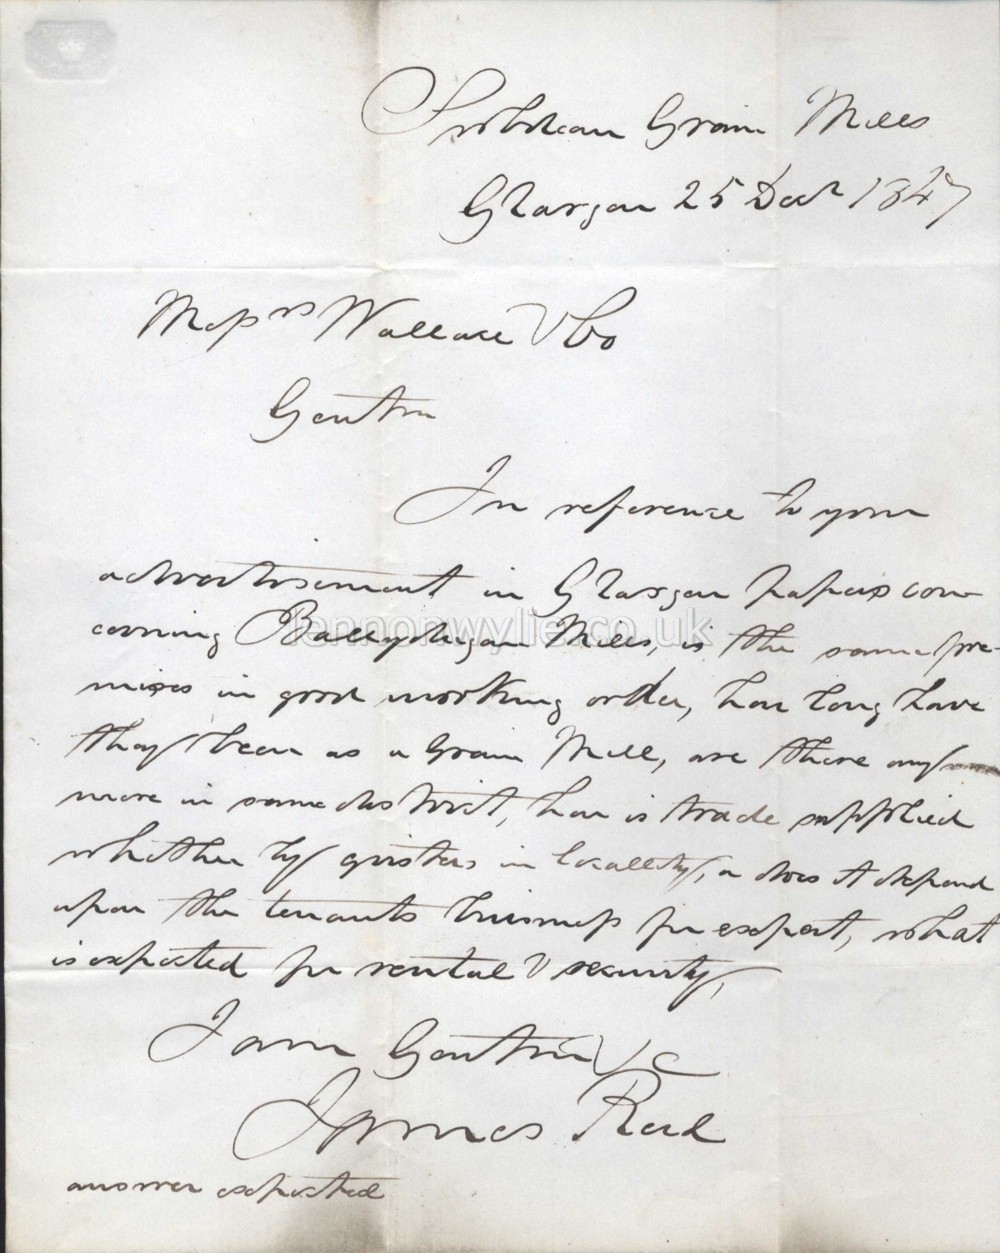 Grain Mills
Glasgow 25 Decr 1847
Messrs Wallace & Co
Gentn
In reference to your
advertisement in Glasgow papers con-
cerning Ballydugan Mills, is the same pre-
mises in good working order, how long have
they been as a Grain Mill, are there any
more in same district, how is trade supplied
whether by gristers in locality, or does it depend
upon the tenants business for export, what
is expected for rental & security,
I am Gentn &c
James Reid
answer expected
lennonwylie.co.uk